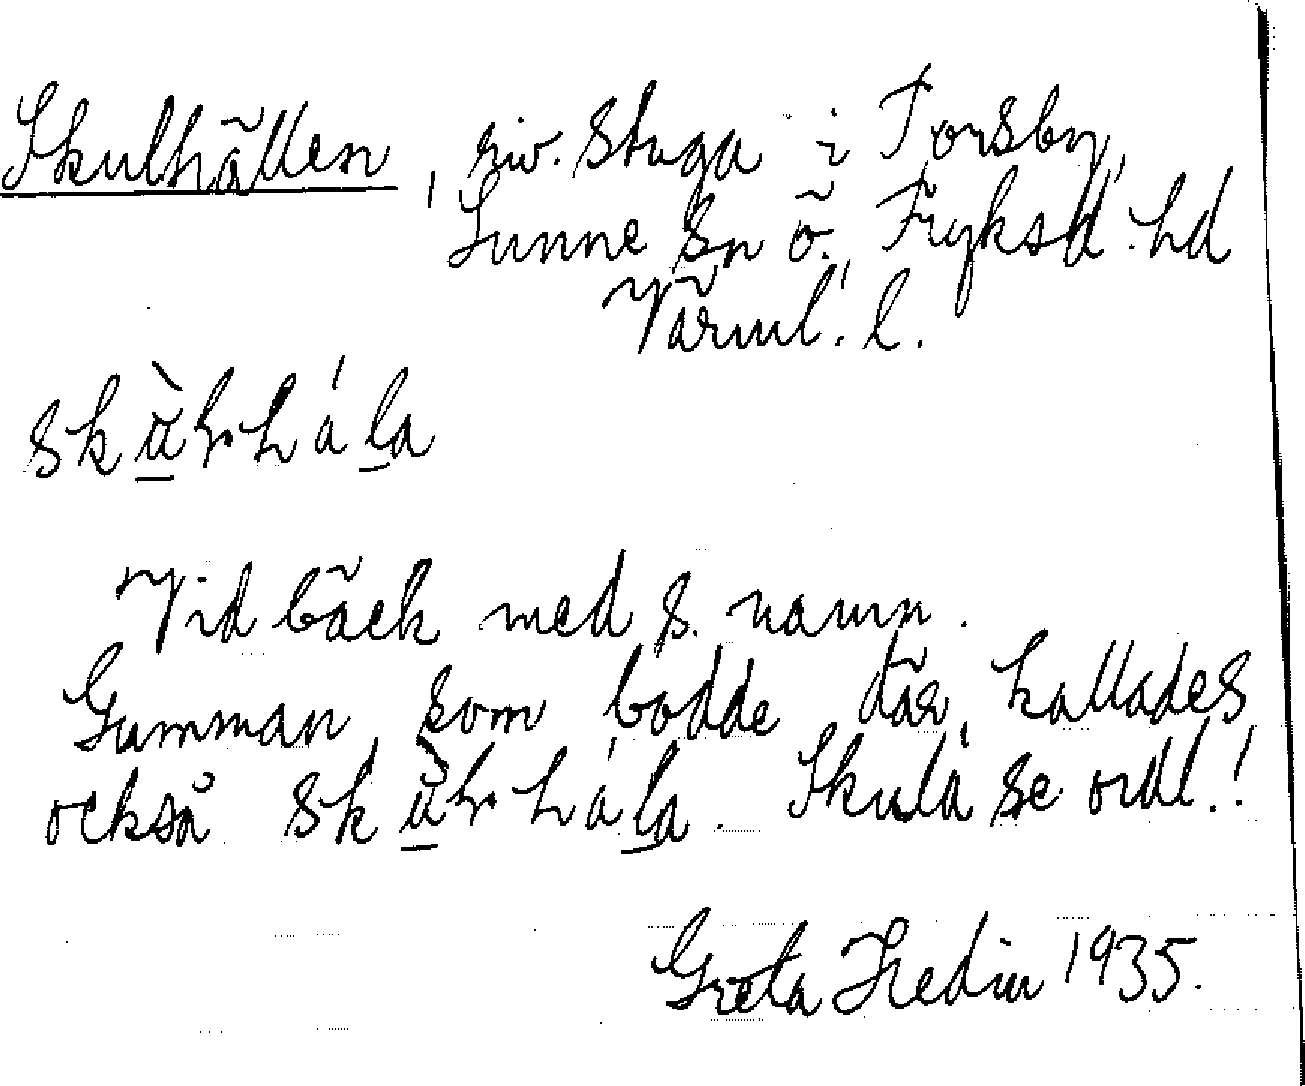 Skulhällen, riv. stuga i Torsby,
Sunne sn Ö. Fryksd. hd
Värml. l.
Vid bäck med s. namn.
Gumman som bodde där, kallades
också Skula se ordl.!
Greta Hedin 1935.